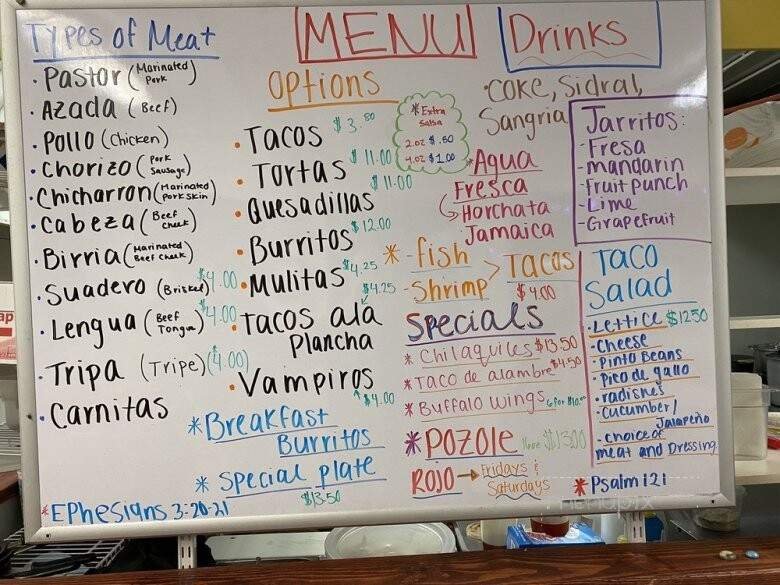 Types of Meat
· Pastor (Marinated Pork)
· Azada (Beef)
· Pollo (Chicken)
· Chorizo (Pork Sausage)
· Chicharron (Marinated Pork skin)
· Cabeza (Beef Cheek)
· Birria (Marinated Beef Cheek)
· Suadero (Brisket) $4.00
· Lengua (Beef Tongue) $4.00
· Tripa (Tripe) $4.00
· Carnitas
*Ephesians 3:20-21
MENU
Options
· Tacos $3.80
· Tortas $11.00
· Quesadillas $11.00
· Burritos $12.00
· Mulitas $4.25
· Tacos ala Plancha $4.25
· Vampiros $4.00
*Extra Salsa
2oz $.50
4oz $1.00
*Breakfast Burritos
* Special plate
$13.50
Drinks
·Coke, Sidral,
Sangria
*Agua
Fresca
Horchata
Jamaica
Jarritos:
-Fresa
-mandarin
-Fruit punch
-Lime
-Grapefruit
* -fish
-Shrimp > Tacos
$4.00
Specials
* Chilaquiles $13.50
* Taco de alambre $4.50
* Buffalo wings 6 for
*Pozole $13.00
ROJO → Fridays &
Saturdays
Taco
Salad
-Lettice $12.50
-cheese
-Pinto Beans
-Pico de gallo
-radishes
-cucumber/
Jalapeño
-choice of
meat and Dressing
*Psalm 121